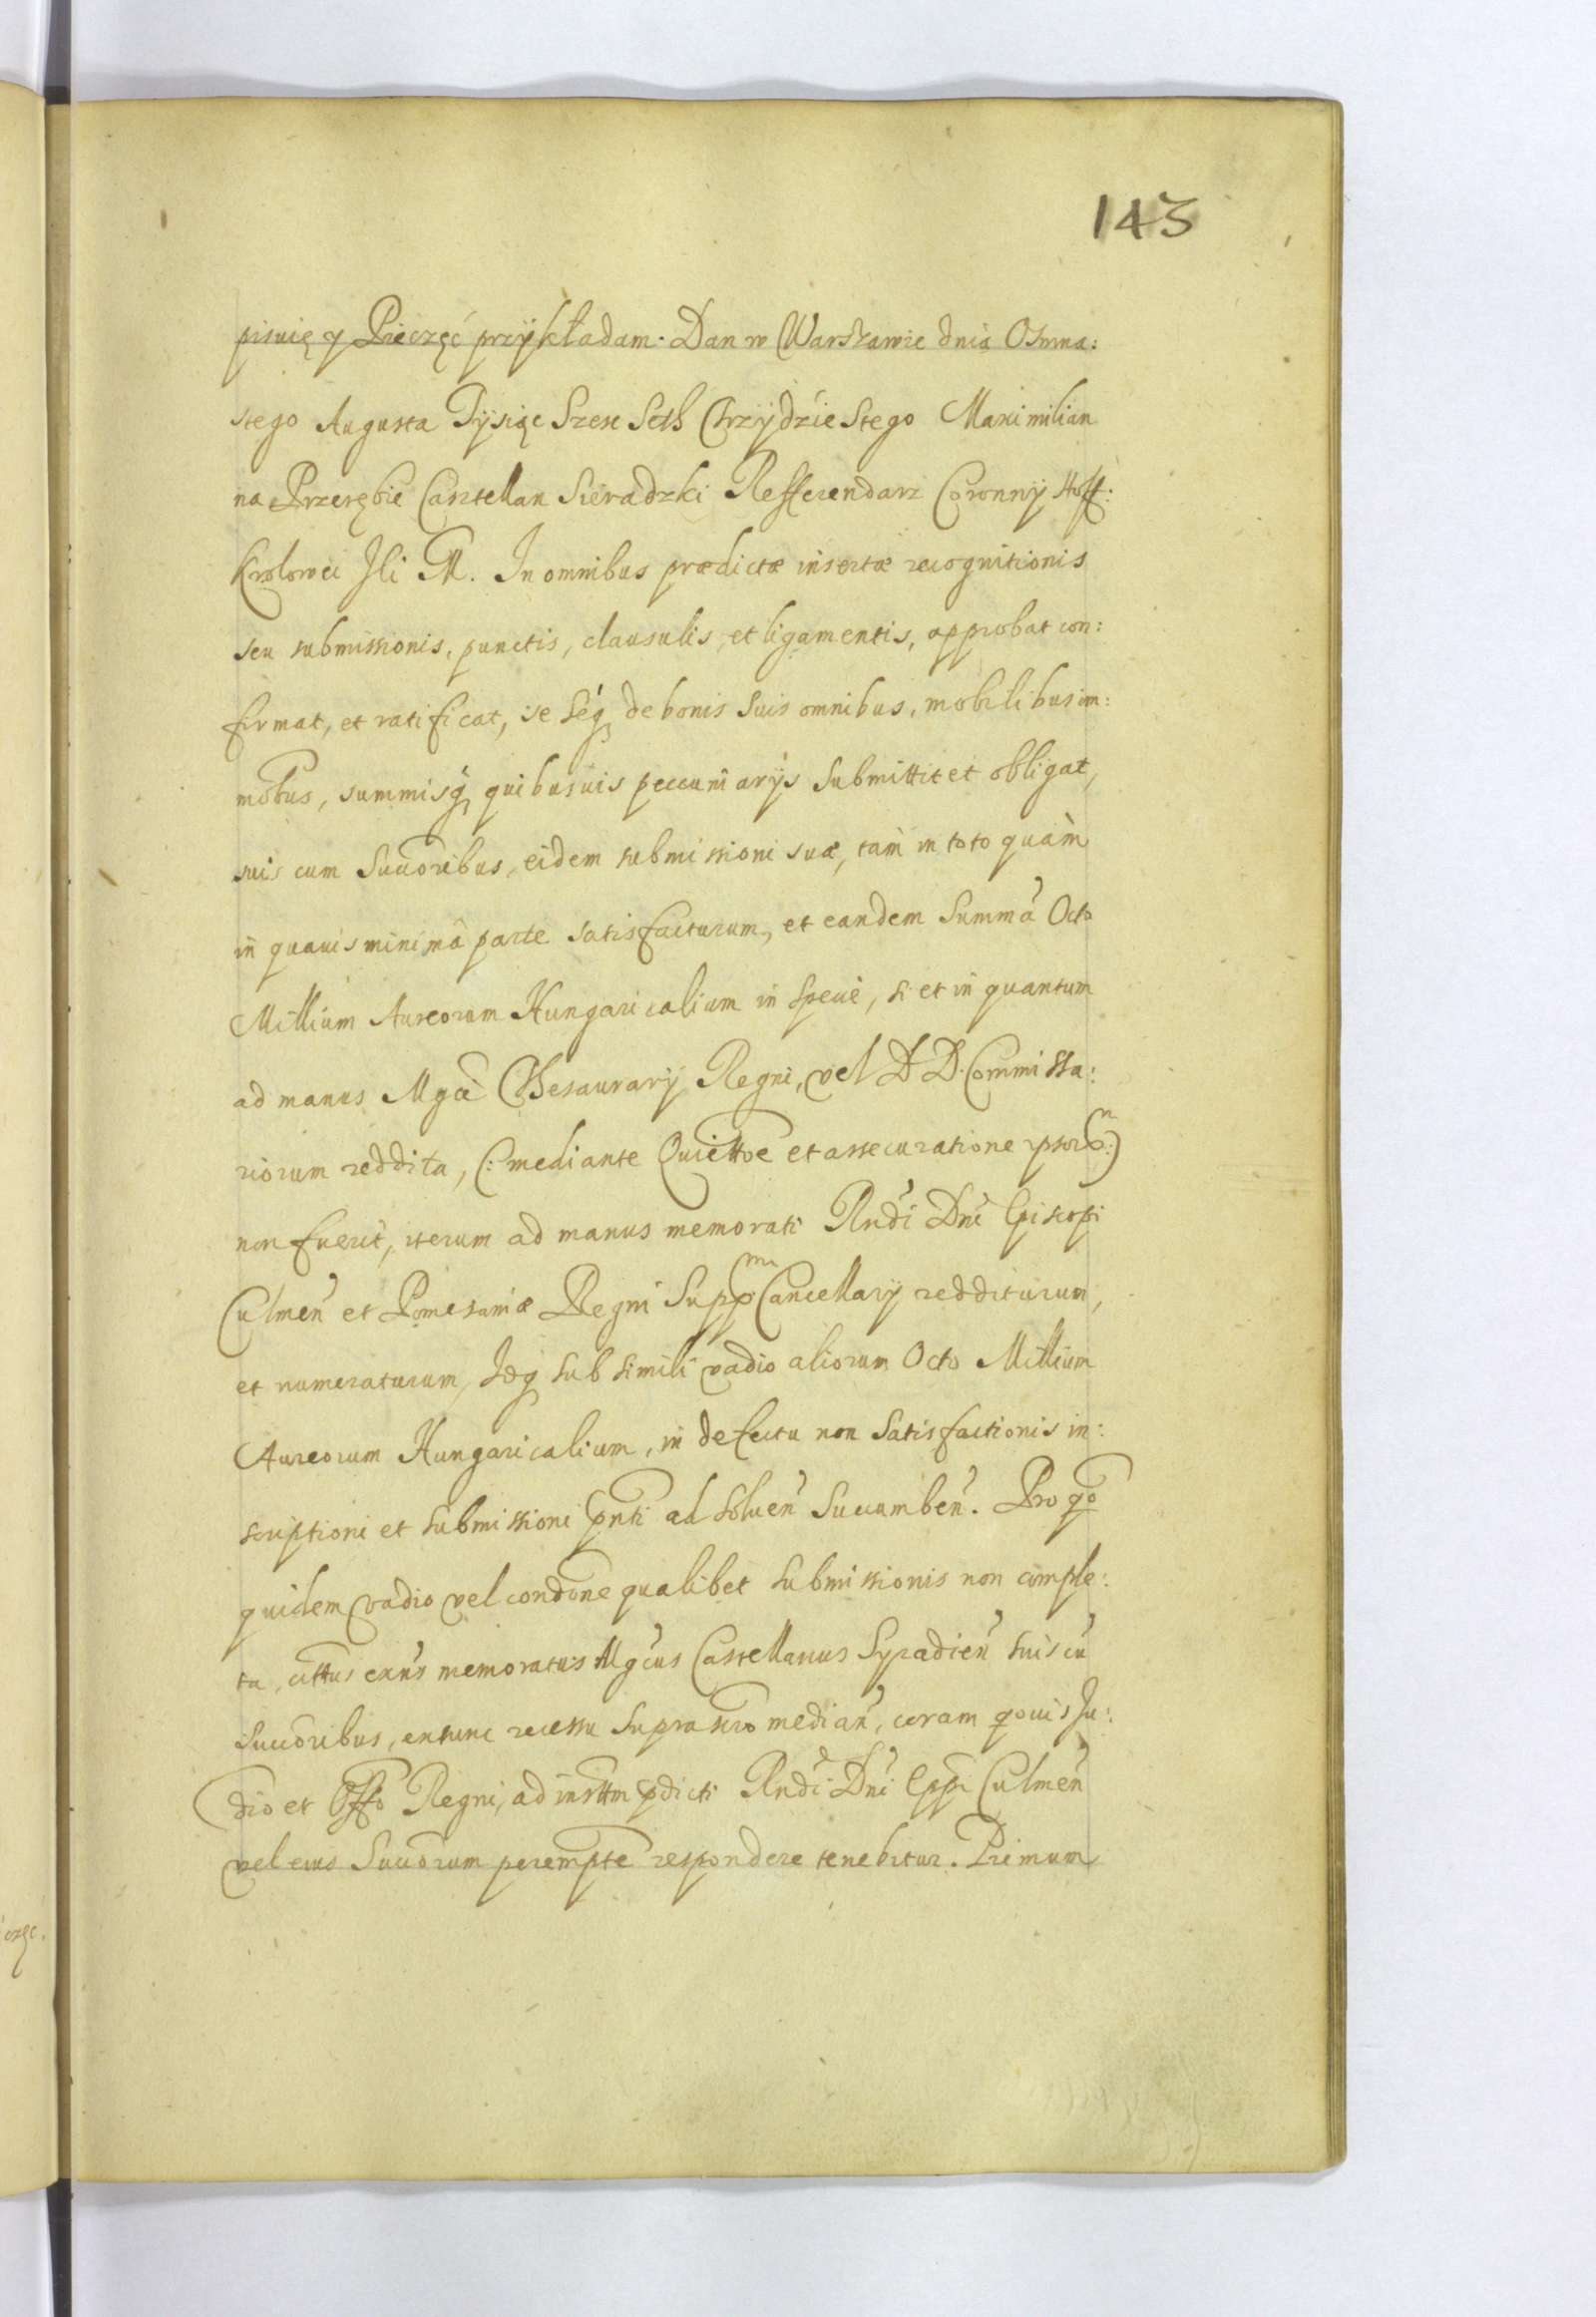 143
pisuię y Pieczęć przÿkładam. Dan w Warszawie dnia Osmna:
stego Augusta Tysiąc Szesc Seth Trzÿdzie Stego Maximilian
na Przerębie Casztellan Sieradzki Refferendarz Coronnÿ Hoff:
Krolowei Jli M. In omnibus prædictæ insertæ recognitionis
seu submissionis, punctis, clausulis, et ligamentis, approbat con:
firmat, et ratificat, se séq de bonis suis omnibus, mobilibus im:
mobus, summisq quibusuis peccuniarÿs submittit et obligat,
suis cum Succoribus, eidem submissioni suæ, tam in toto quàm
in quauis minimâ parte satisfacturum, et eandem Summá Octo
Millium Aureorum Hungaricalium in specie, si et in quantum
ad manus Mgci Thesaurarÿ Regni, vel D D. Commissa:
riorum reddita, (: mediante Quiettoe et assecuratione ipsor:)
non fuerit, iterum ad manus memorati Rndi Dni Episcopi
Culmen et Pomesaniæ Regni Supp Cancellarÿ redditurum,
et numeraturum, Idq sub simili vadio aliorum Octo Millium
Aureorum Hungaricalium, in defectu non satisfactionis in:
scriptioni et submissioni pnti ad soluen succumben. Pro qo
quidem vadio vel condone qualibet submissionis non comple:
ta, cittus exns memoratus Mgcus Castellanus Syradien suis cu
Succoribus, extunc recessu suprascro median, coram qouis Ju:
dio et Offo Regni, ad insttm pdicti Rndi Dni Eppi Culmen
vel eius Succorum perempte respondere tenebitur. Primum